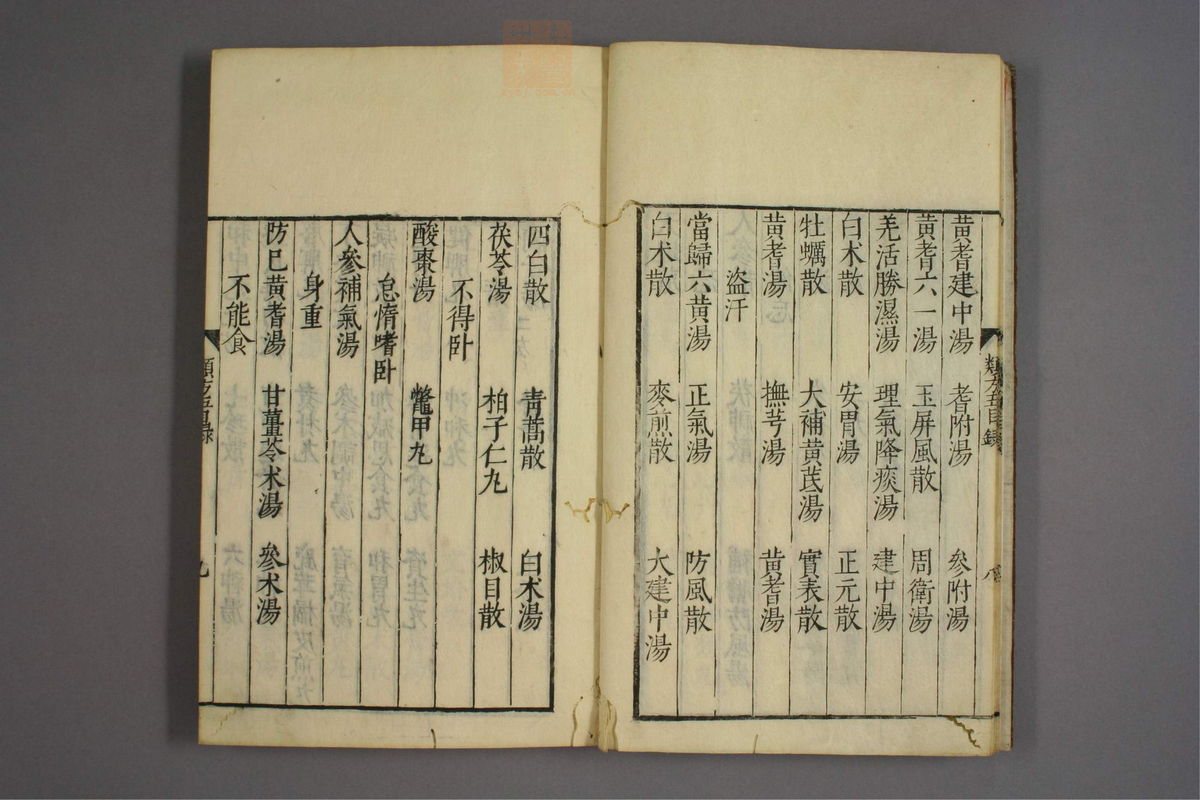 黃耆建中湯 耆附湯 參附湯
黃耆六一湯 玉屏風散 周衛湯
羌活勝濕湯 理氣降痰湯 建中湯
白术散 安胃湯 正元散
牡蠣散 大補黃茋湯 實表散
黃耆湯 撫芎湯 黃耆湯
盜汗
當歸六黃湯 正氣湯 防風散
白术散 麥煎散 大建中湯
類方五目錄 八
四白散 青蒿散 白术湯
茯苓湯 柏子仁丸 椒目散
不得卧
酸棗湯 鱉甲丸
怠惰嗜卧
人參補氣湯
身重
防已黃耆湯 甘薑苓术湯 參术湯
不能食
類方五目錄 九